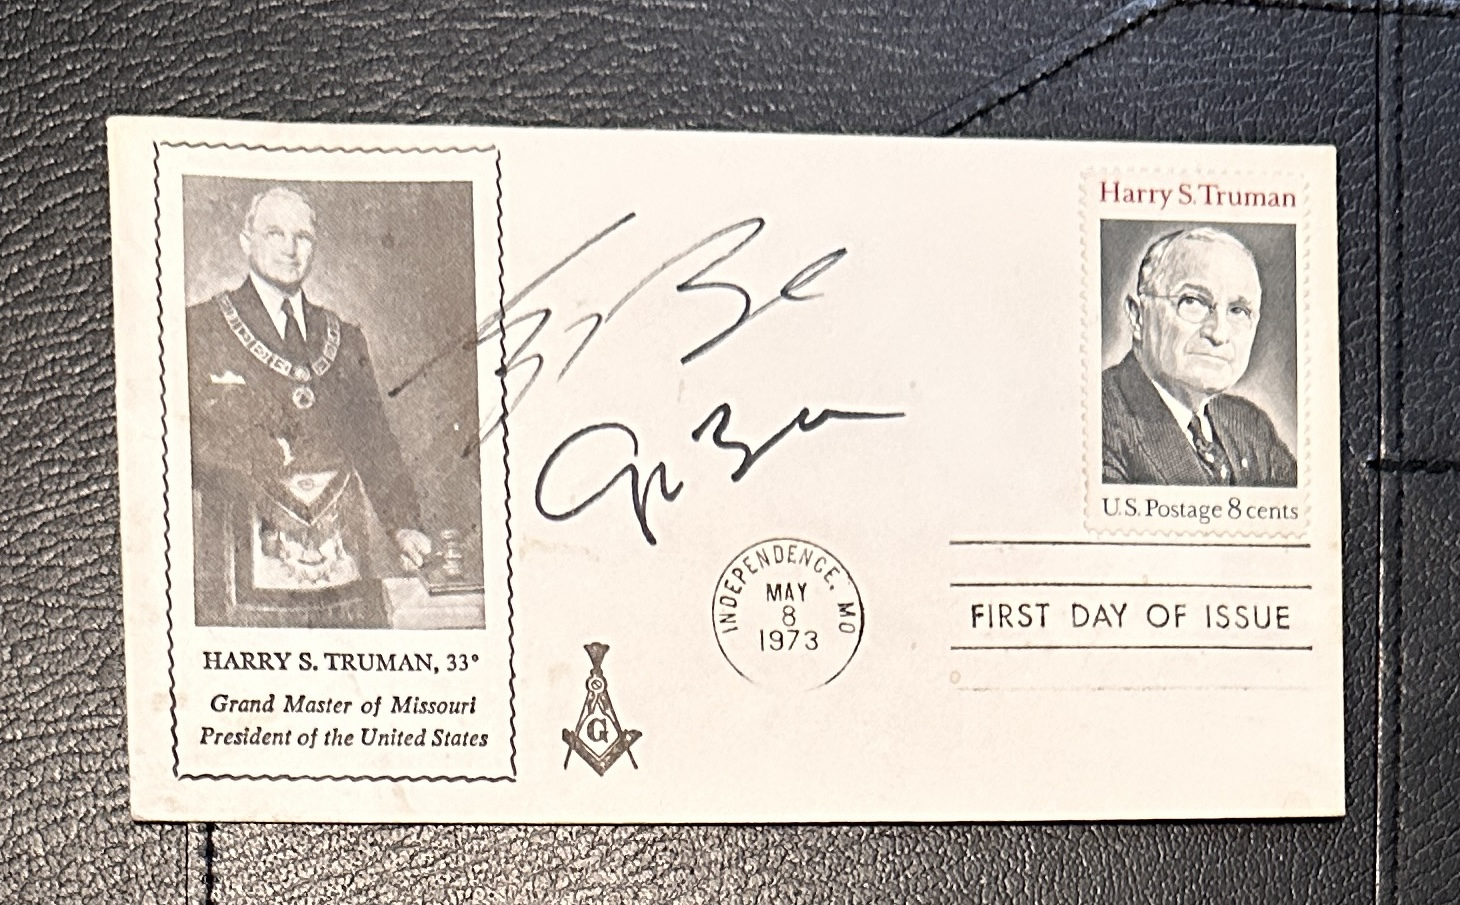 HARRY S. TRUMAN, 33°
Grand Master of Missouri
President of the United States
G
INDEPENDENCE, MO
MAY
8
1973
Harry S. Truman
U.S. Postage 8 cents
FIRST DAY OF ISSUE